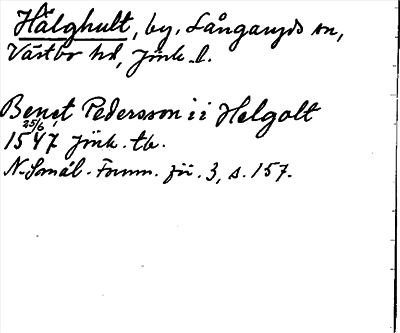 Hälghult, by, Långaryds sn,
Västbo hd, Jönk. l.
Benct Pedersson ii Helgolt
25/6 1547 Jönk. tb.
N. Smål. Fornm. för. 3, s. 157.